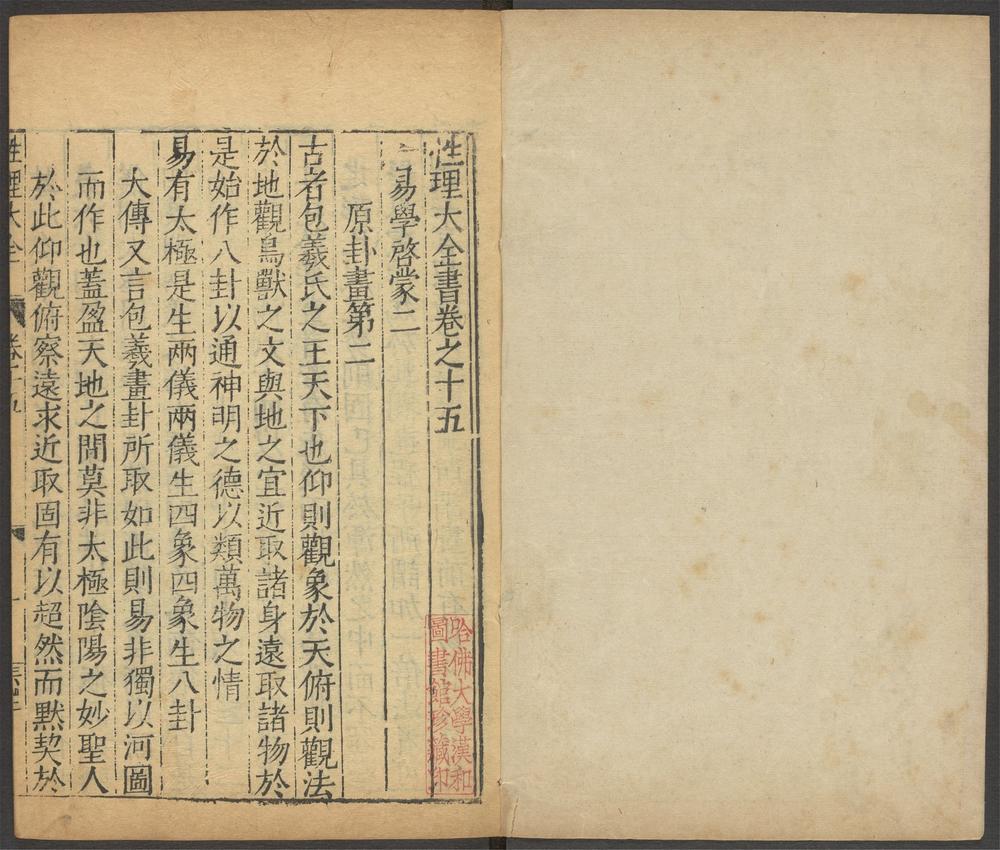 性理大全書卷之十五
易學啓蒙二
原卦畫第二
古者包羲氏之王天下也仰則觀象於天俯則觀法
於地觀鳥獸之文與地之宜近取諸身遠取諸物於
是始作八卦以通神明之德以類萬物之情
易有太極是生兩儀兩儀生四象四象生八卦
大傳又言包羲畫卦所取如此則易非獨以河圖
而作也蓋盈天地之間莫非太極陰陽之妙聖人
於此仰觀俯察遠求近取固有以超然而默契於
性理大全
卷十五
一
哈佛大學漢和
圖書館珍藏印